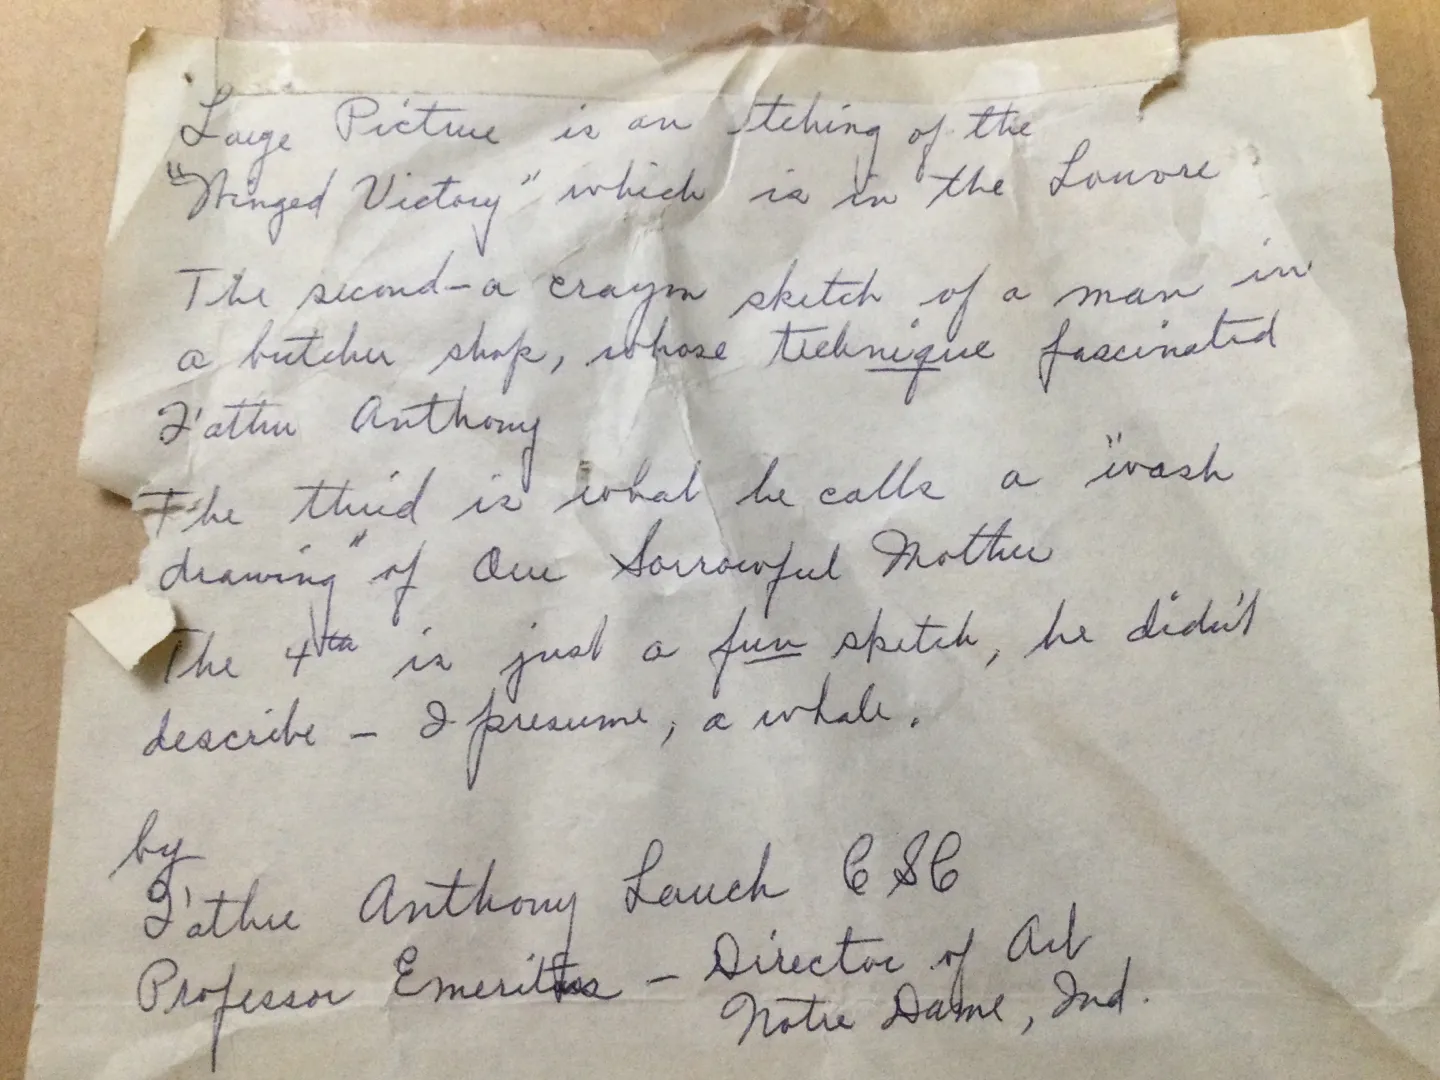 Large Picture is an etching of the
"Winged Victory" which is in the Louvore
The second - a crayon sketch of a man in
a butcher shop, whose technique fascinated
Father Anthony
The third is what he calls a "wash
drawing" of Our Sorrowful Mother
The 4th is just a fun sketch, he didn't
describe - I presume, a whale.
by
Father Anthony Lauck CSC
Professor Emeritus - Director of Art
Notre Dame, Ind.